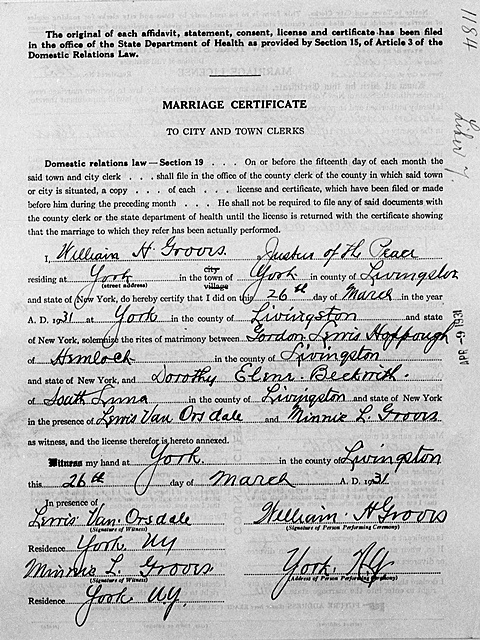 The original of each affidavit, statement, consent, license and certificate has been filed
in the office of the State Department of Health as provided by Section 15, of Article 3 of the
Domestic Relations Law.
1184
Liber 7.
MARRIAGE CERTIFICATE
TO CITY AND TOWN CLERKS
Domestic relations law—Section 19 . . . On or before the fifteenth day of each month the
said town and city clerk . . . shall file in the office of the county clerk of the county in which said town
or city is situated, a copy . . . of each . . . license and certificate, which have been filed or made
before him during the preceding month . . . He shall not be required to file any of said documents with
the county clerk or the state department of health until the license is returned with the certificate showing
that the marriage to which they refer has been actually performed.
I, William H. Groovs. Justice of the Peace
residing at York in the city town village of York in county of Livingston
(street address)
and state of New York, do hereby certify that I did on this 26th day of March in the year
A. D. 1931 at York in the county of Livingston and state
of New York, solemnize the rites of matrimony between Gordon Lewis Hoppough
of Hemlock in the county of Livingston
and state of New York, and Dorothy Elene Beckwith.
of South Lima in the county of Livingston and state of New York
in the presence of Lewis Van Orsdale and Minnie L. Groovs
as witness, and the license therefor is hereto annexed.
Witness my hand at York. in the county of Livingston
this 26th day of March A. D. 1931
APR -9 1931
In presence of
Lewis Van. Orsdale William H Groovs
(Signature of Witness) (Signature of Person Performing Ceremony)
Residence York, NY
Minnie L. Groovs York, N.Y.
(Signature of Witness) (Address of Person Performing Ceremony)
Residence York N.Y.